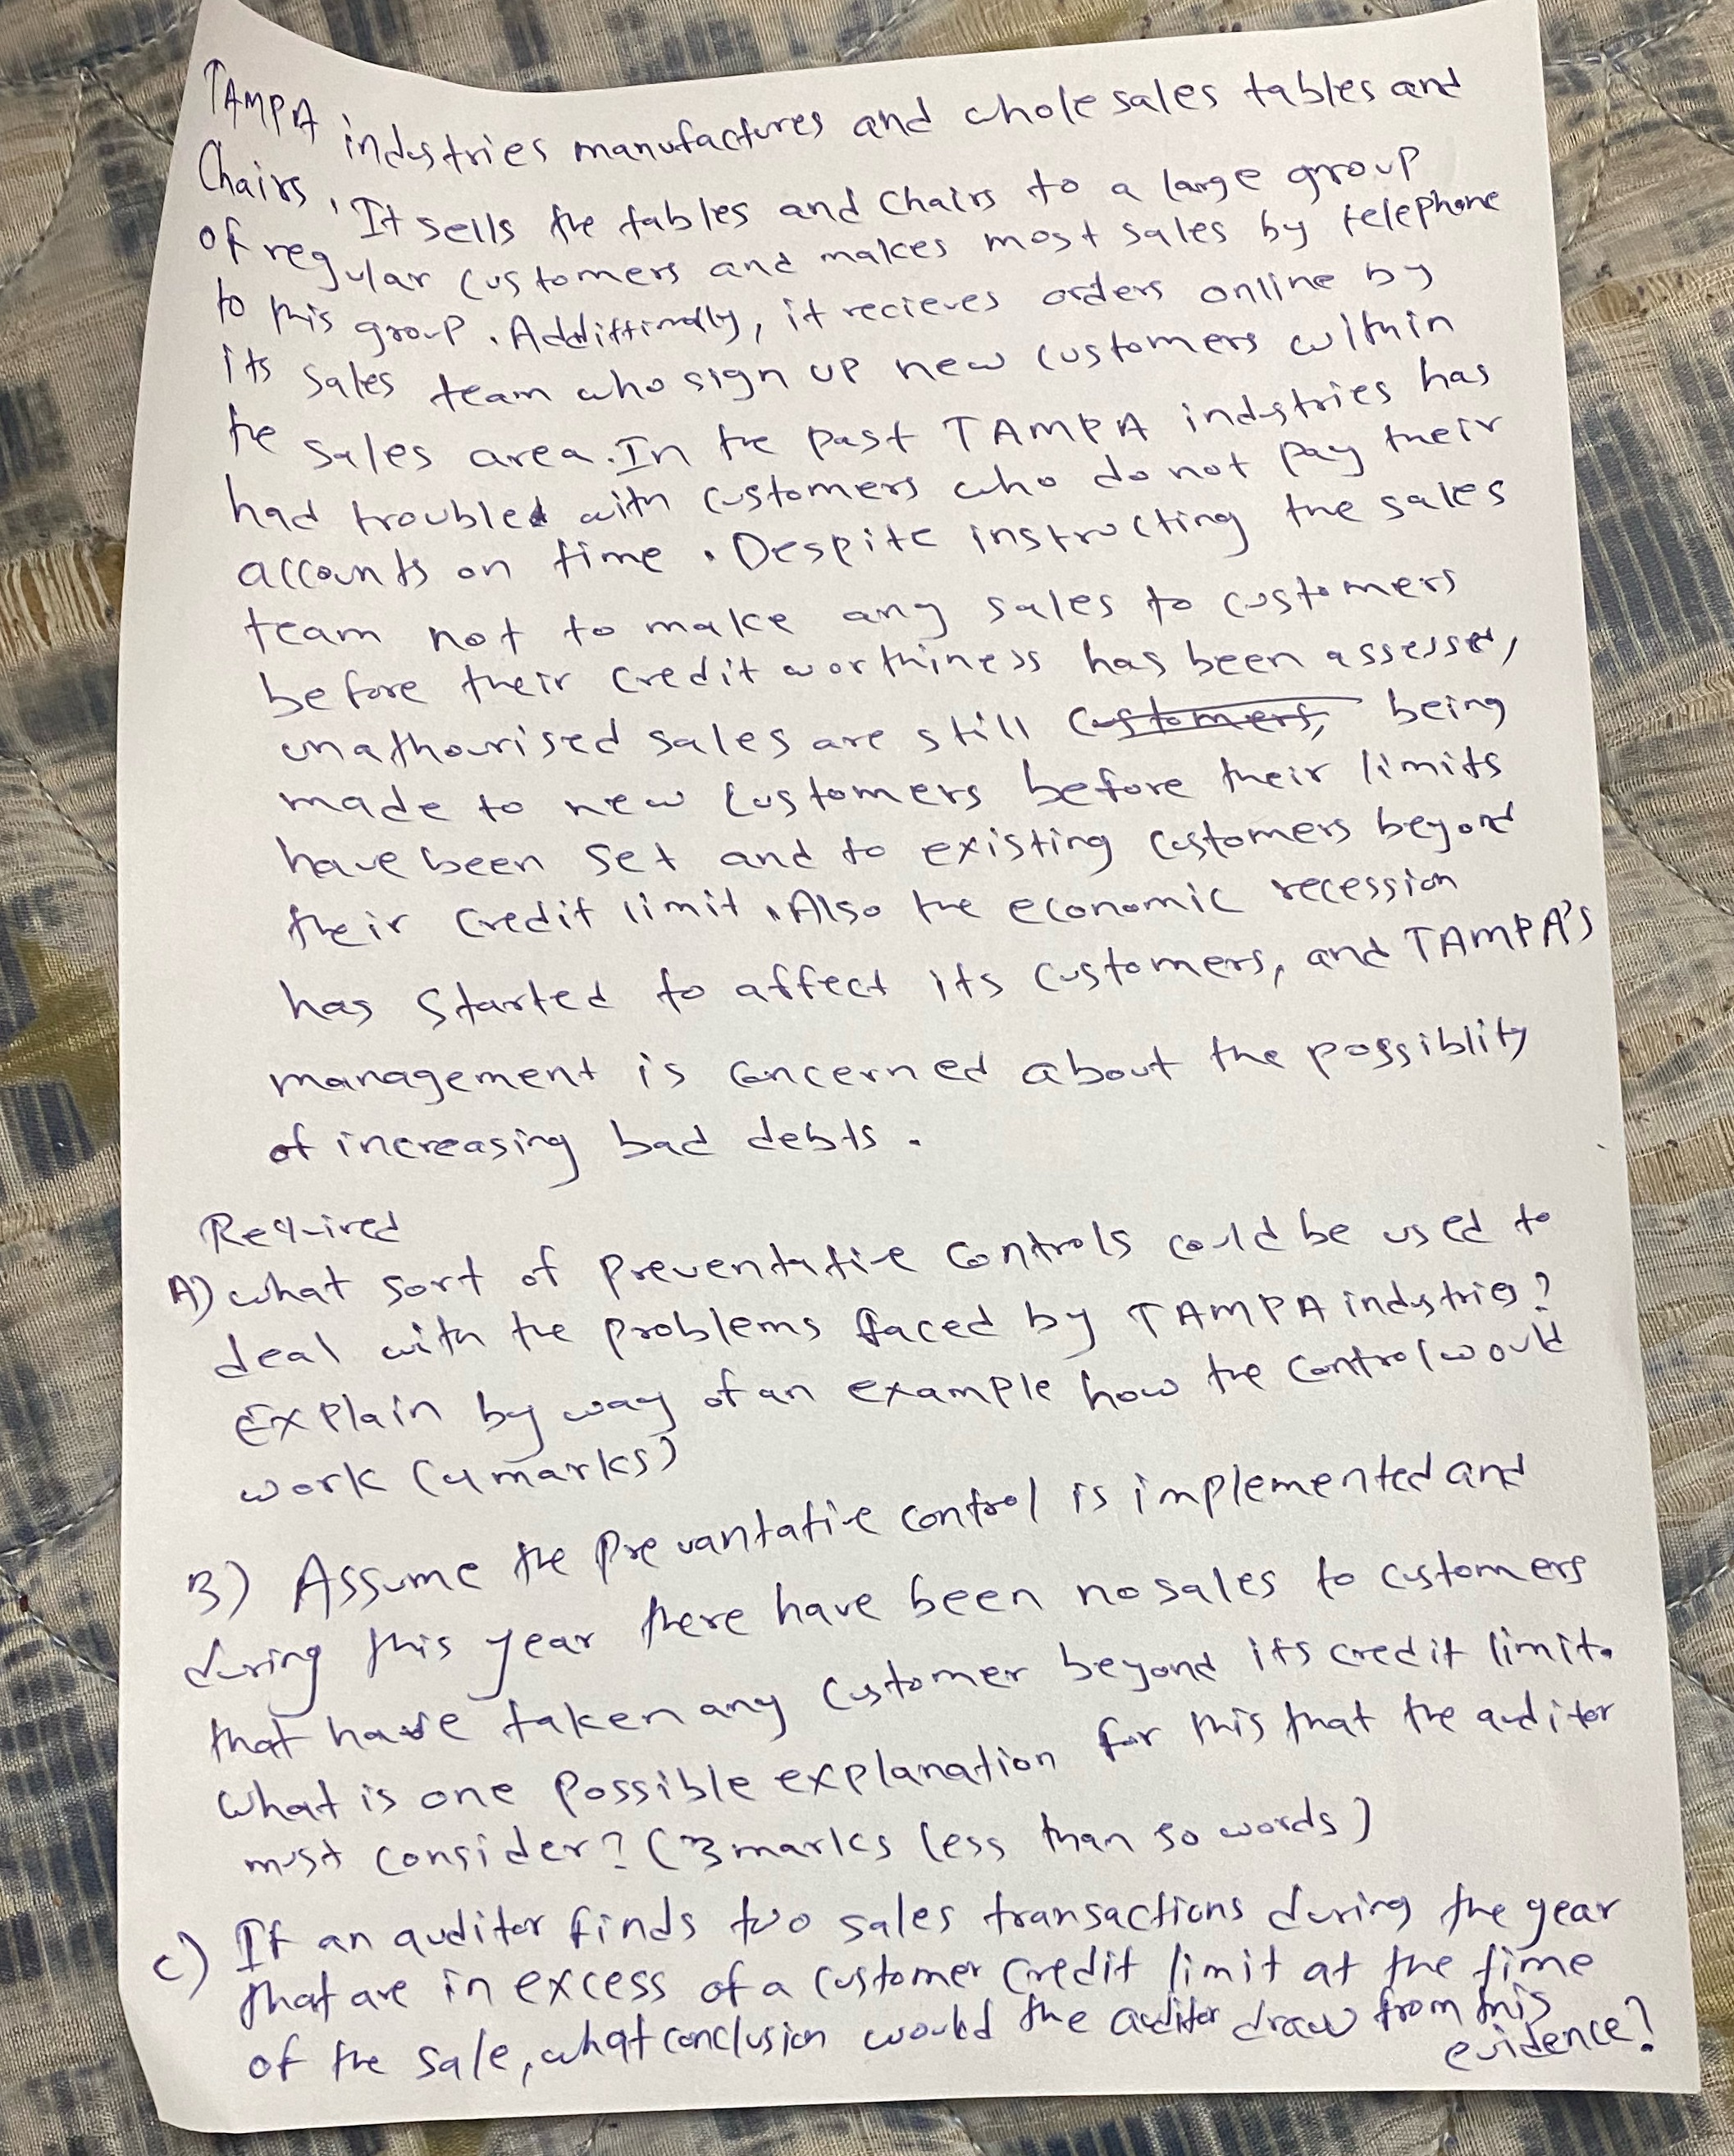 TAMPA industries manufactures and whole sales tables and
Chairs. It sells the tables and chairs to a large group
of regular customers and makes most sales by telephone
to this group. Addittinally, it recieves orders online by
its sales team who sign up new customers within
the sales area. In the past TAMPA industries has
had troubled with customers who do not pay their
accounts on time. Despite instructing the sales
team not to make any sales to customers
before their credit worthiness has been assessed,
unathourised sales are still customers, being
made to new customers before their limits
have been set and to existing customers beyond
their credit limit. Also the economic recession
has started to affect its customers, and TAMPA's
management is concerned about the possiblity
of increasing bad debts.
Required
A) what sort of preventative controls could be used to
deal with the problems faced by TAMPA industries?
Explain by way of an example how the control would
work (4 marks)
B) Assume the prevantative control is implemented and
during this year there have been no sales to customers
that have taken any customer beyond its credit limit.
what is one possible explanation for this that the auditor
must consider? (3 marks less than 50 words)
c) If an auditor finds two sales transactions during the year
that are in excess of a customer credit limit at the time
of the sale, what conclusion would the auditor draw from this
evidence?